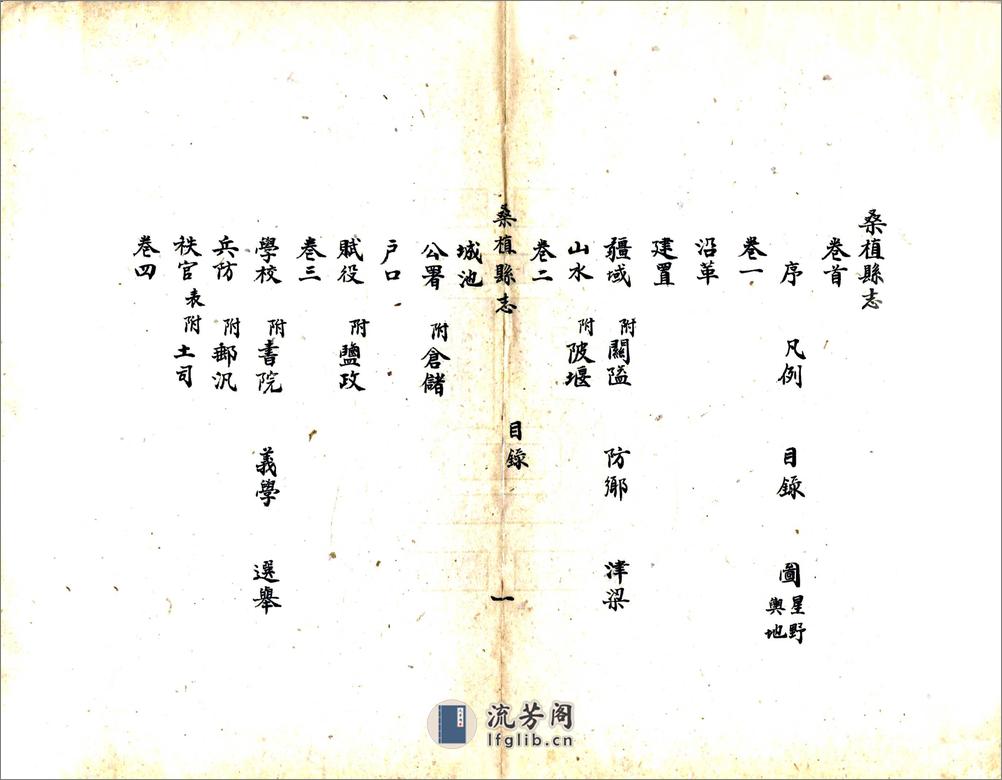 桑植縣志
卷首
序 凡例 目錄 圖 星野 輿地
卷一
沿革
建置
疆域 附關隘 防鄉 津梁
山水 附陂堰
卷二
桑植縣志 目錄 一
城池
公署 附倉儲
戶口
賦役 附鹽政
卷三
學校 附書院 義學 選舉
兵防 附郵汛
秩官表 附土司
卷四
流芳阁
lfglib.cn